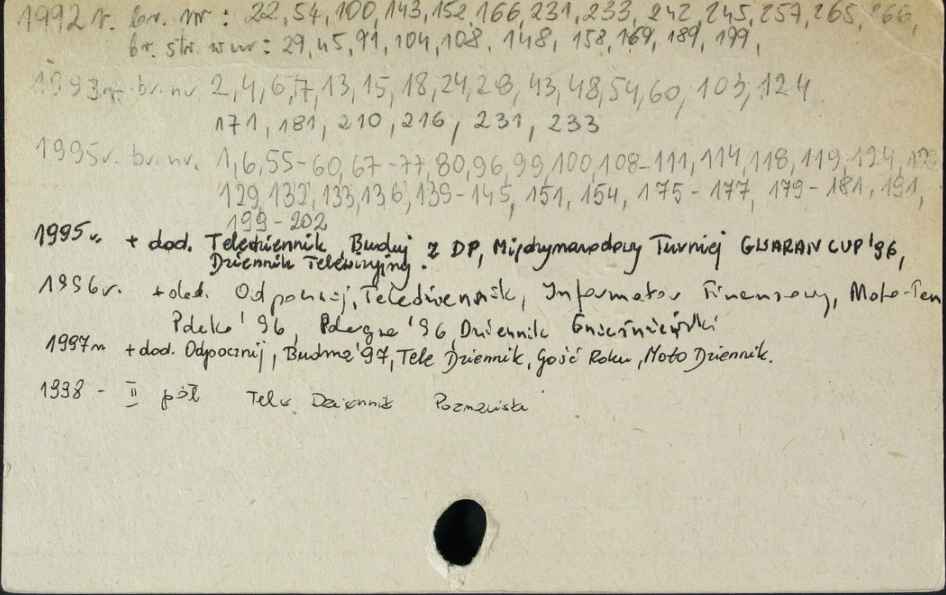 1992 r. br. nr: 22, 54, 100, 143, 152, 166, 231, 233, 242, 245, 257, 265, 266,
br. str. w nr: 29, 45, 91, 104, 108, 148, 158, 169, 189, 199,
1993r. br. nr. 2, 4, 6, 7, 13, 15, 18, 24, 28, 43, 48, 54, 60, 103, 124
171, 181, 210, 216, 231, 233
1995r. br. nr. 1, 6, 55-60, 67-77, 80, 96, 99, 100, 108-111, 114, 118, 119, 124,
129, 132, 133, 136, 139-145, 151, 154, 175-177, 179-181, 191,
199-202
1995r. + dod. Teledziennik, Buduj z DP, Międzynarodowy Turniej GWARAN CUP '96,
Dziennik Telewizyjny.
1996r. + dod. Odpocznij, Teledziennik, Informator Finansowy, Moto-
'96, '96, Dziennik Gnieźnieński
1997r + dod. Odpocznij, Budma '97, Tele Dziennik, Gość Roku, Moto Dziennik.
1998 - II pół Tele Dziennik